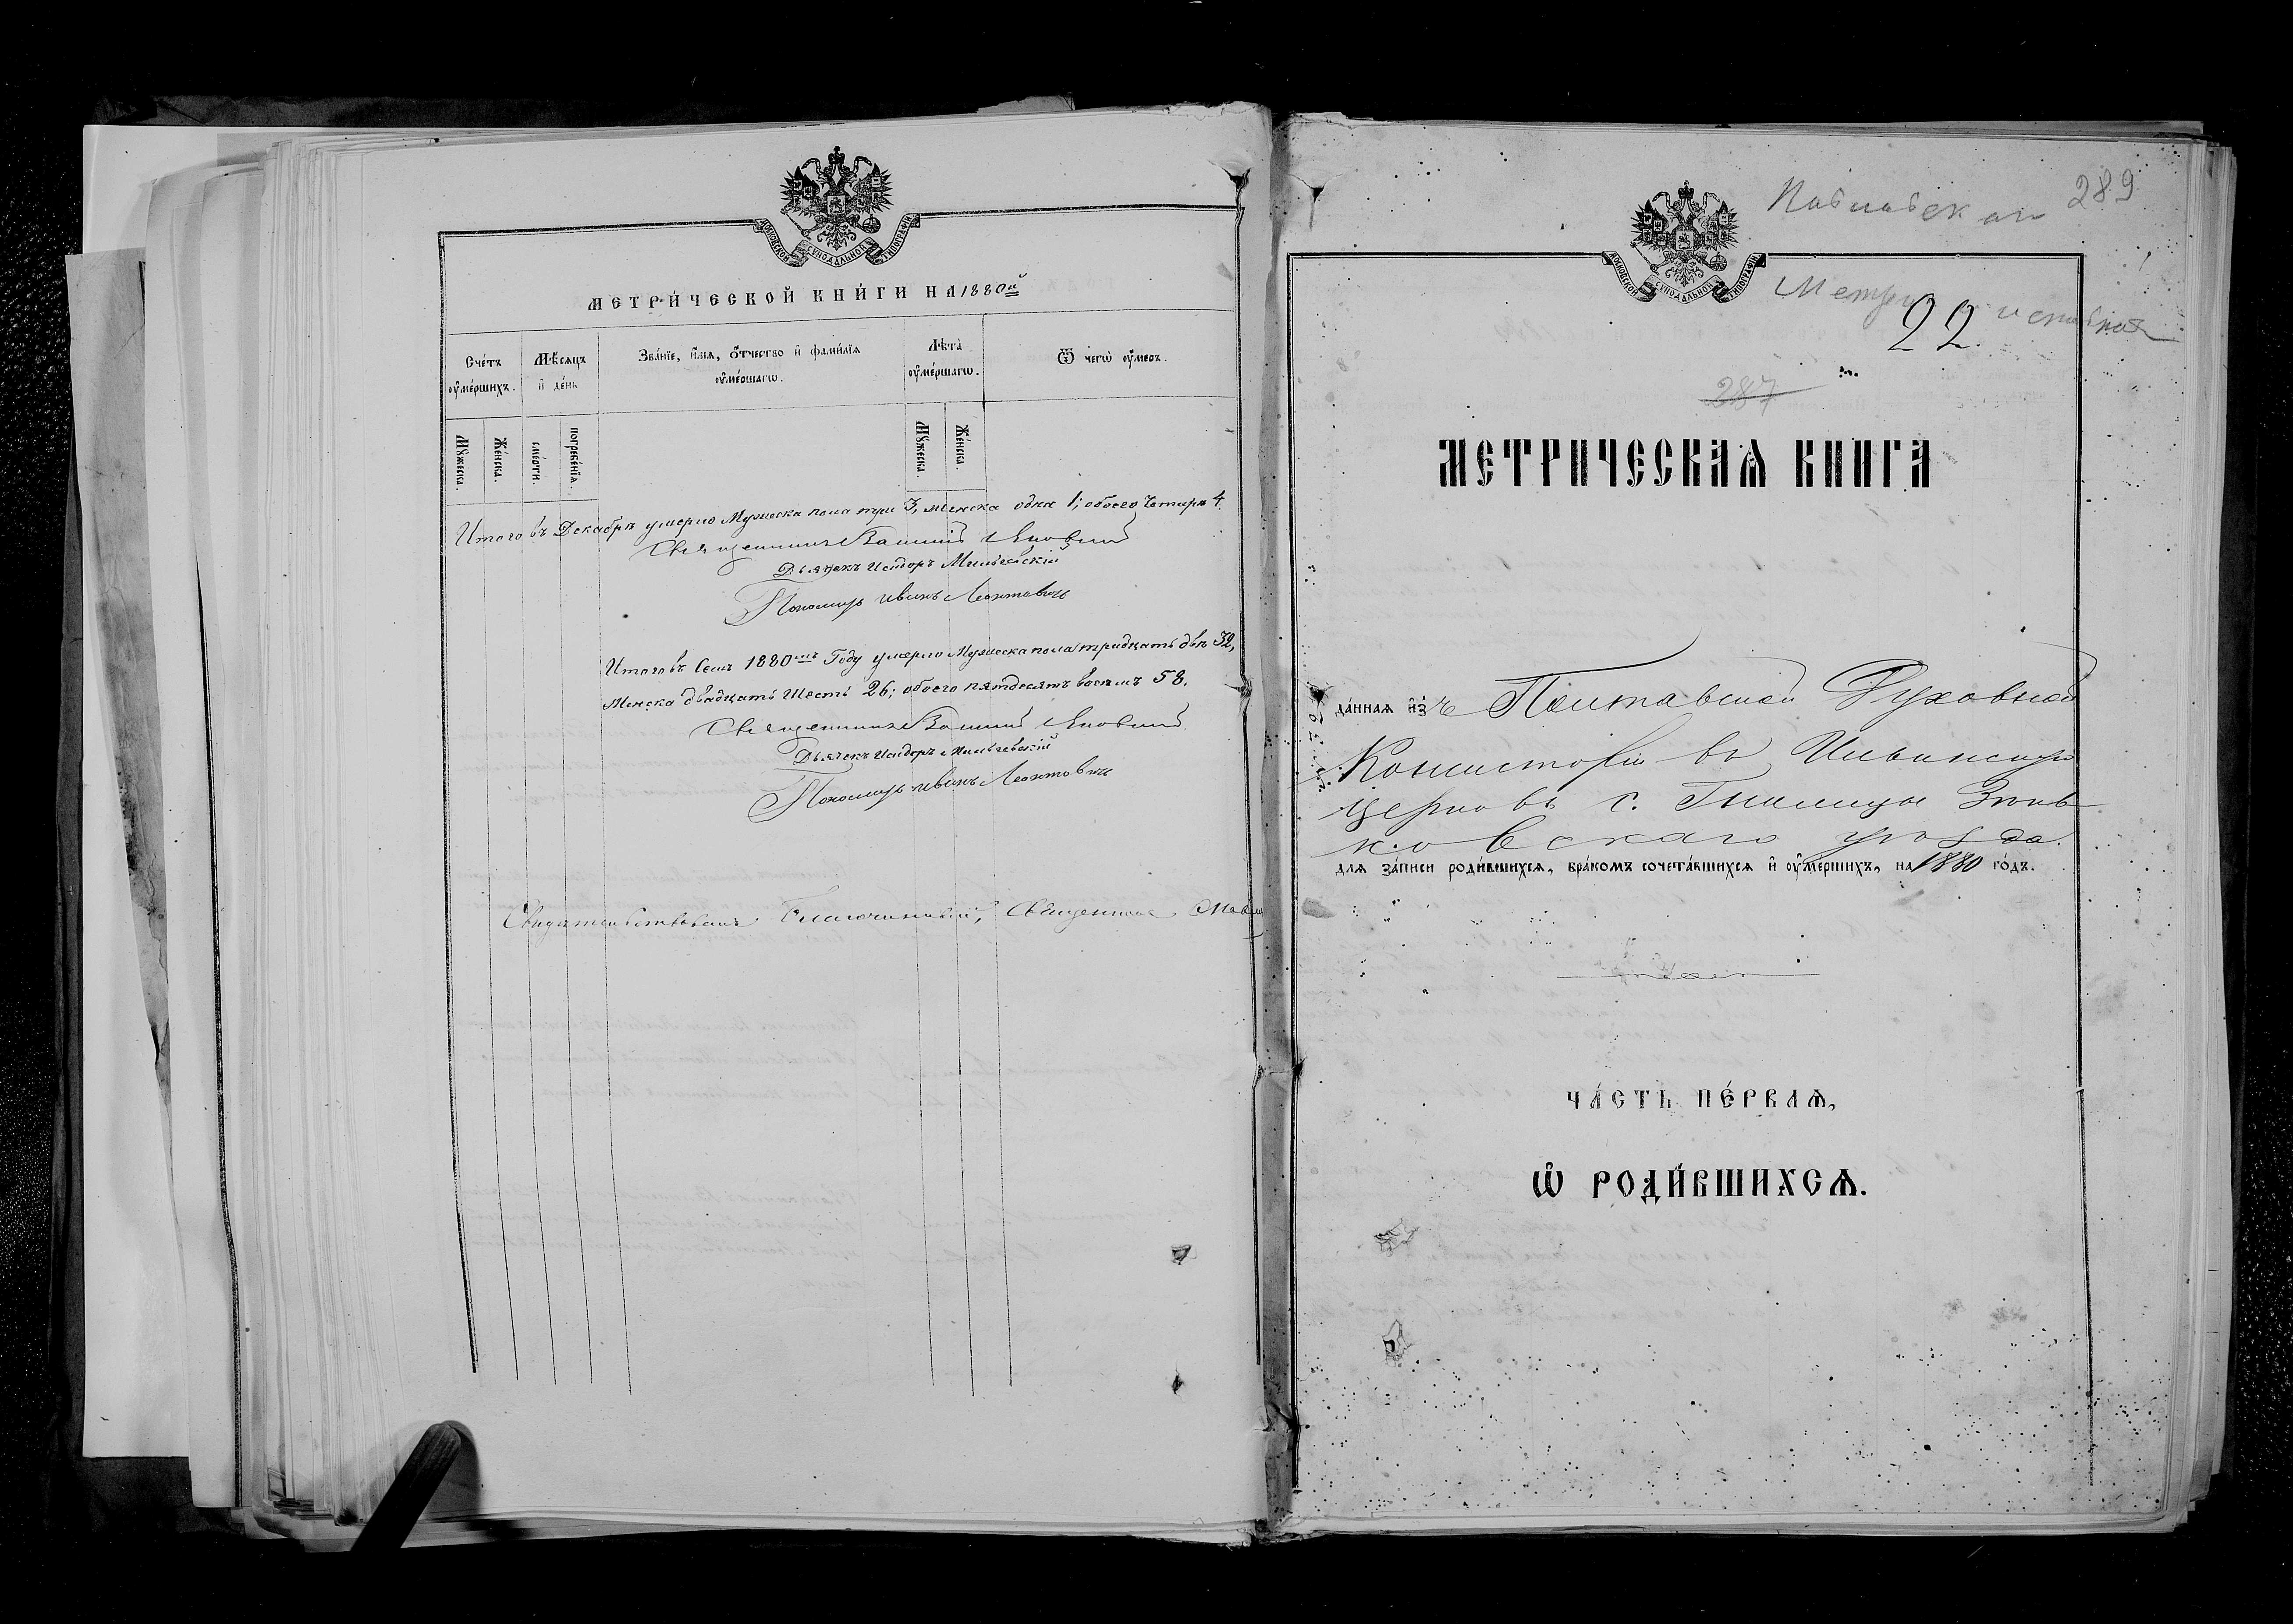 МОСКОВСКОЙ СѴНОДАЛЬНОЙ ТИПОГРАФІИ
МЕТРИ́ЧЕСКОЙ КНИ́ГИ НА 1880й
Сче́тъ ᲂу҆ме́ршихъ.
Мѣ́сяцъ и҆ де́нь
Зва́нїе, и҆́мѧ, ѻ҆́тчество и҆ фами́лїѧ ᲂу҆ме́ршагѡ.
Лѣта̀ ᲂу҆ме́ршагѡ.
Ѿ чегѡ̀ ᲂу҆́меръ.
Мꙋ́жеска.
Же́нска.
сме́рти.
погребе́нїѧ.
Мꙋ́жеска.
Же́нска.
Итого въ Декабрѣ умерло Мужеска пола три 3, женска одна 1; обоего четыре 4.
Священникъ
Дьячекъ Исидоръ
Пономарь Иванъ Леонтовичъ
Итого въ Семъ 1880мъ Году умерло Мужеска пола тридцать двѣ 32,
Женска двадцать Шесть 26; обоего пятдесятъ восемъ 58.
Священникъ
Дьячекъ Исидоръ
Пономарь Иванъ Леонтовичъ
Свидетельствовалъ Благочинный, Священникъ
289
МОСКОВСКОЙ СѴНОДАЛЬНОЙ ТИПОГРАФІИ
22.
287
МЕТРИЧЕСКАѦ КНИГА
да́ннаѧ и҆зъ Полтавской Духовной
Консисторіи въ
церковь с. Зѣнь
ковскаго уѣзда.
длѧ за́писи роди́вшихсѧ, бра́комъ сочета́вшихсѧ и҆ ᲂу҆ме́ршихъ, на 1880 го́дъ.
ЧА́СТЬ ПЕ́РВАѦ,
Ѡ҆ РОДИ́ВШИХСѦ.